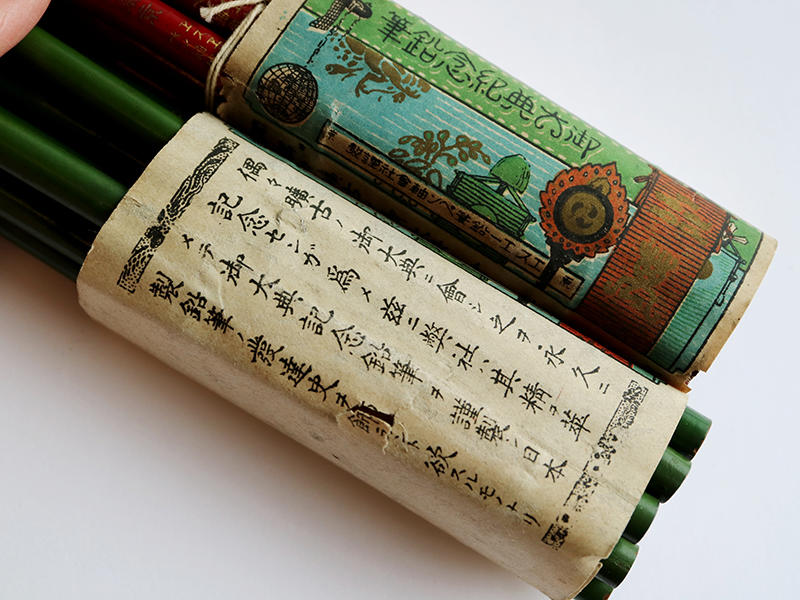 御大典紀念鉛筆
偶々曠古ノ御大典ニ會シ之ヲ永久ニ
記念センガ爲メ茲ニ弊社ハ其精ヲ萃
メテ御大典記念鉛筆ヲ謹製シ日本
製鉛筆ノ發達史ヲ飾ラント欲スルモノナリ